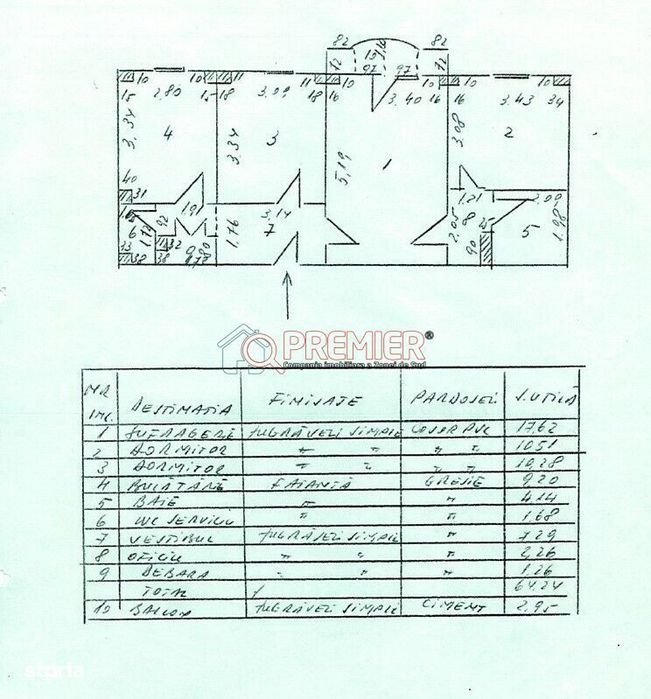 82 82
12 10 1,10 12
97 97
10 10 11 11 10 10 10 10
15 2,80 15 18 3,09 18 16 3,40 16 16 3,43 34
3,34 4 3,34 3 5,19 1 3,08 2
40
31 1,91 3,14 1,21 2,09
92 1,76 7 2,05 8 25 5 1,98
6 1,72 32 90
33 38 38
PREMIER®
Compania imobiliara a Zonei de Sud
NR INC. DESTINATIA FINISAJE PARDOSELI S.UTILĂ
1 SUFRAGERIE ZUGRĂVELI SIMPLE COVOR PVC 17,62
2 DORMITOR " " " " 10,51
3 DORMITOR " " " " 10,28
4 BUCĂTĂRIE FAIANȚĂ GRESIE 9,20
5 BAIE " " 4,14
6 WC SERVICIU " " 1,68
7 VESTIBUL ZUGRĂVELI SIMPLE " 7,29
8 OFICIU " " " 2,26
9 DEBARA " " " 1,26
TOTAL 64,24
10 BALCON ZUGRĂVELI SIMPLE CIMENT 2,95
storia